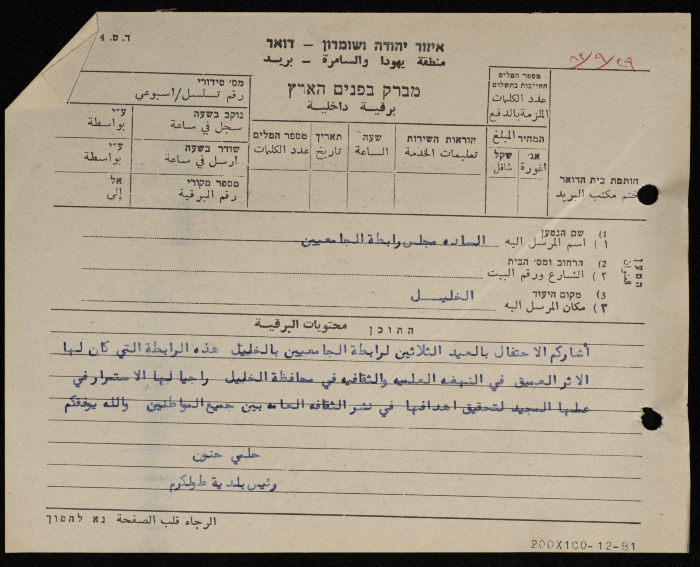 ד.ס. 4
איזור יהודה ושומרון - דואר
منطقة يهودا والسامرة - بريد
٨٣/٩/٢٩
מברק בפנים הארץ
برقية داخلية
מס׳ סידורי
رقم تسلسل/اسبوعي
נוקב בשעה
سجل في ساعة
ע״י
بواسطة
שודר בשעה
ارسل في ساعة
ע״י
بواسطة
מספר מקורי
رقم البرقية
אל
إلى
מספר המלים
عدد الكلمات
תאריך
تاريخ
שעה
الساعة
הוראות השירות
تعليمات الخدمة
מספר המלים
החייבות בתשלום
عدد الكلمات
الملزمة بالدفع
המחיר المبلغ
אג׳
اغورة
שקל
شاقل
חותמת בית הדואר
ختم مكتب البريد
המען
العنوان
1) שם הנמען
١) اسم المرسل اليه السادة مجلس رابطة الجامعيين
2) הרחוב ומס׳ הבית
٢) الشارع ورقم البيت
3) מקום היעוד
٣) مكان المرسل اليه الخليل
התוכן محتويات البرقية
أشاركم الاحتفال بالعيد الثلاثين لرابطة الجامعيين بالخليل هذه الرابطة التي كان لها
الاثر العميق في النهضه العلميه والثقافيه في محافظة الخليل راجيا لها الاستمرار في
عملها المجيد لتحقيق اهدافها في نشر الثقافه العامه بين جميع المواطنين والله يوفقكم
حلمي حنون
رئيس بلدية طولكرم
الرجاء قلب الصفحة נא להפוך
200X100-12-81